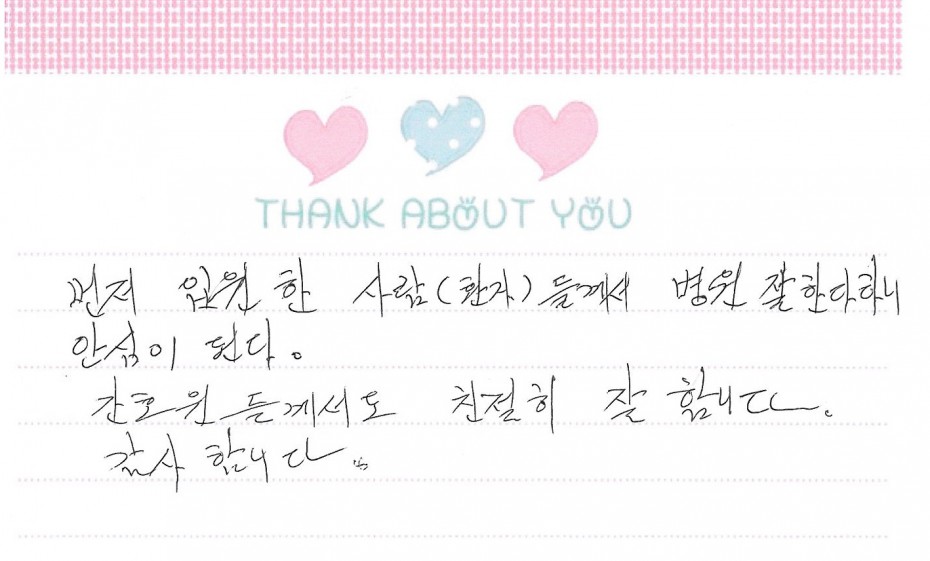 THANK ABOUT YOU
먼저 입원 한 사람(환자)들께서 병원 잘한다하니
안심이 된다.
간호원 들께서도 친절히 잘 합니다.
감사 합니다.